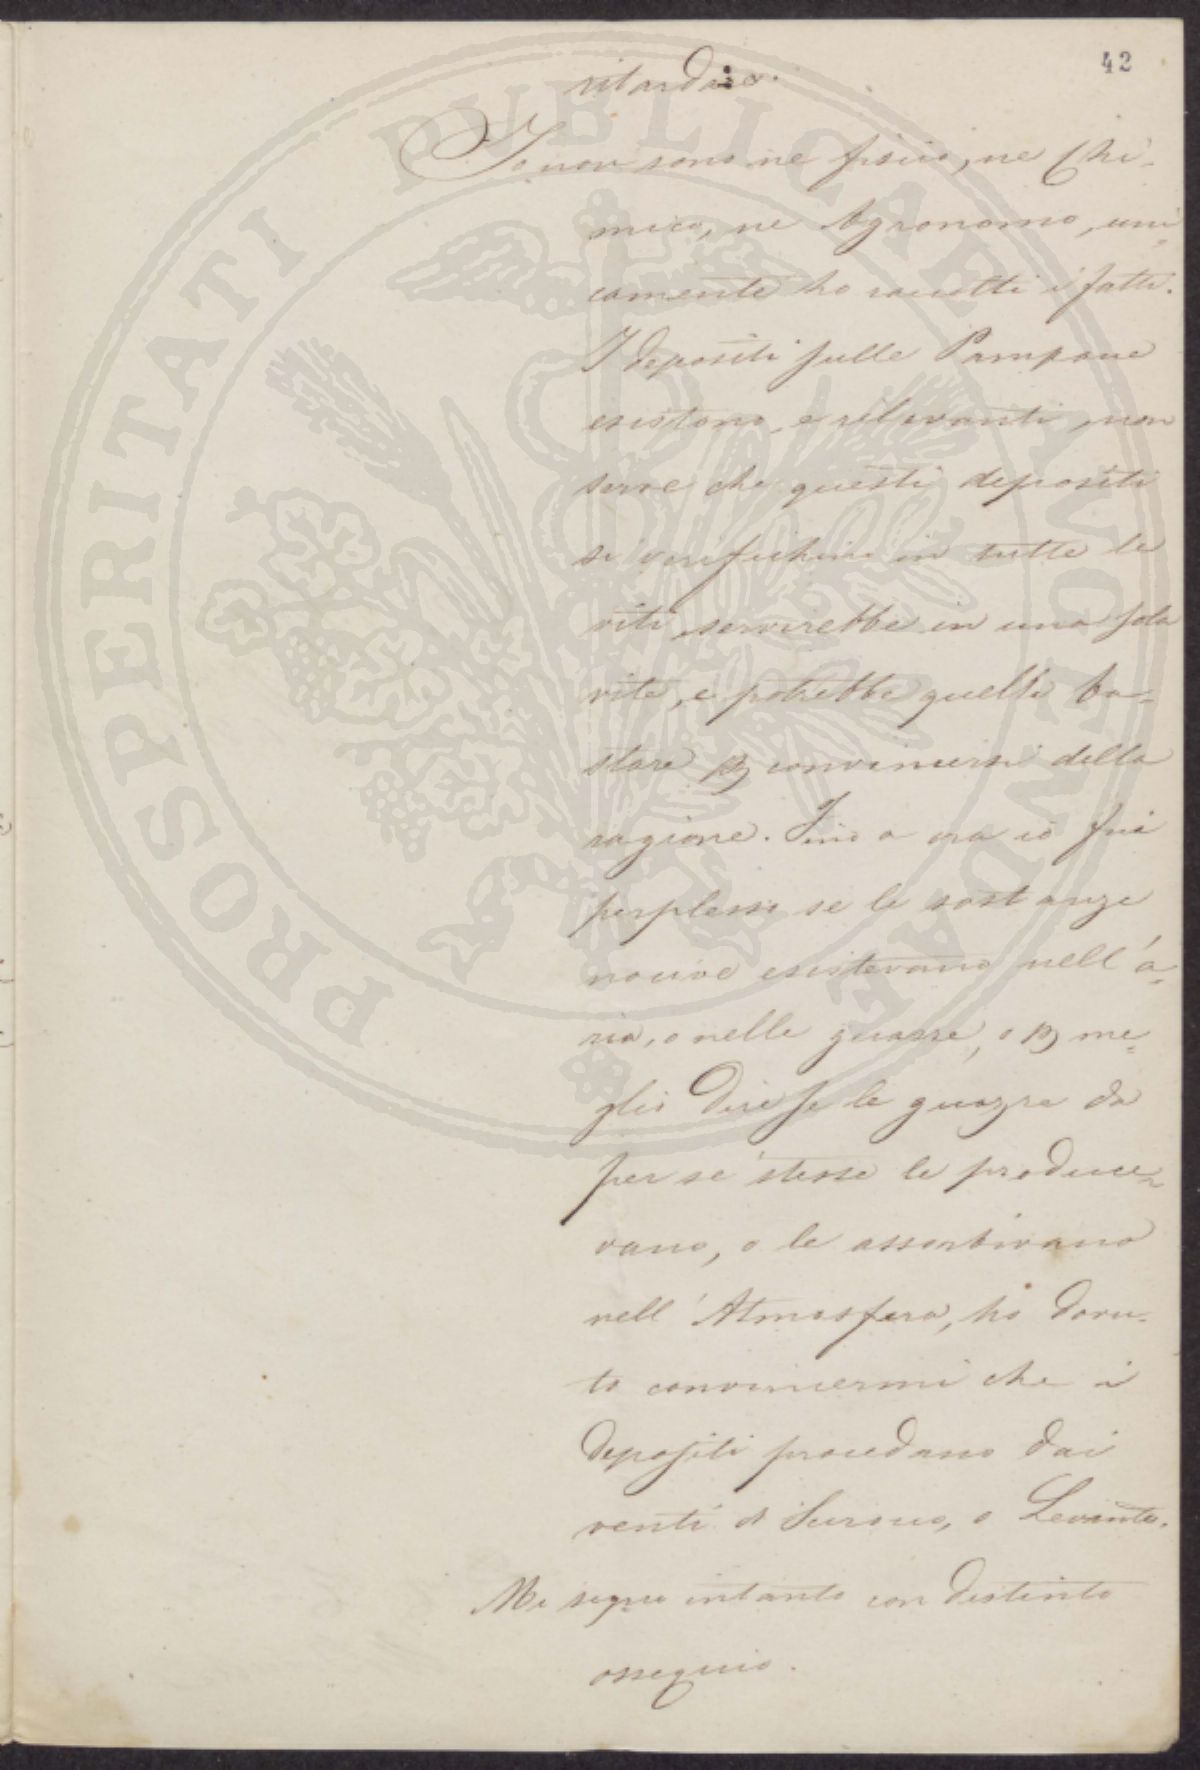 42
ritardare.
Io non sono ne fisico, ne Chi-
mico, ne Agronomo, uni=
camente ho raccolti i fatti.
I depositi sulle Pampane
esistono, e rilevanti, non
serve che questi depositi
si verifichino in tutte le
viti, servirebbe in una sola
vite, e potrebbe quella ba-
stare p convincersi della
ragione. Fino a ora io fui
perplesso se le sostanze
nocive esistevano nell'a=
ria, o nelle guazze, o p me=
glio dire se le guazze da
per se stesse le produce=
vano, o le assorbivano
nell'Atmosfera, ho dovu-
to convincermi che i
depositi procedano dai
venti di Sirocco, o Levante.
Mi segno intanto con distinto
ossequio.
PROSPERITATI PUBLICAE AUGENDAE